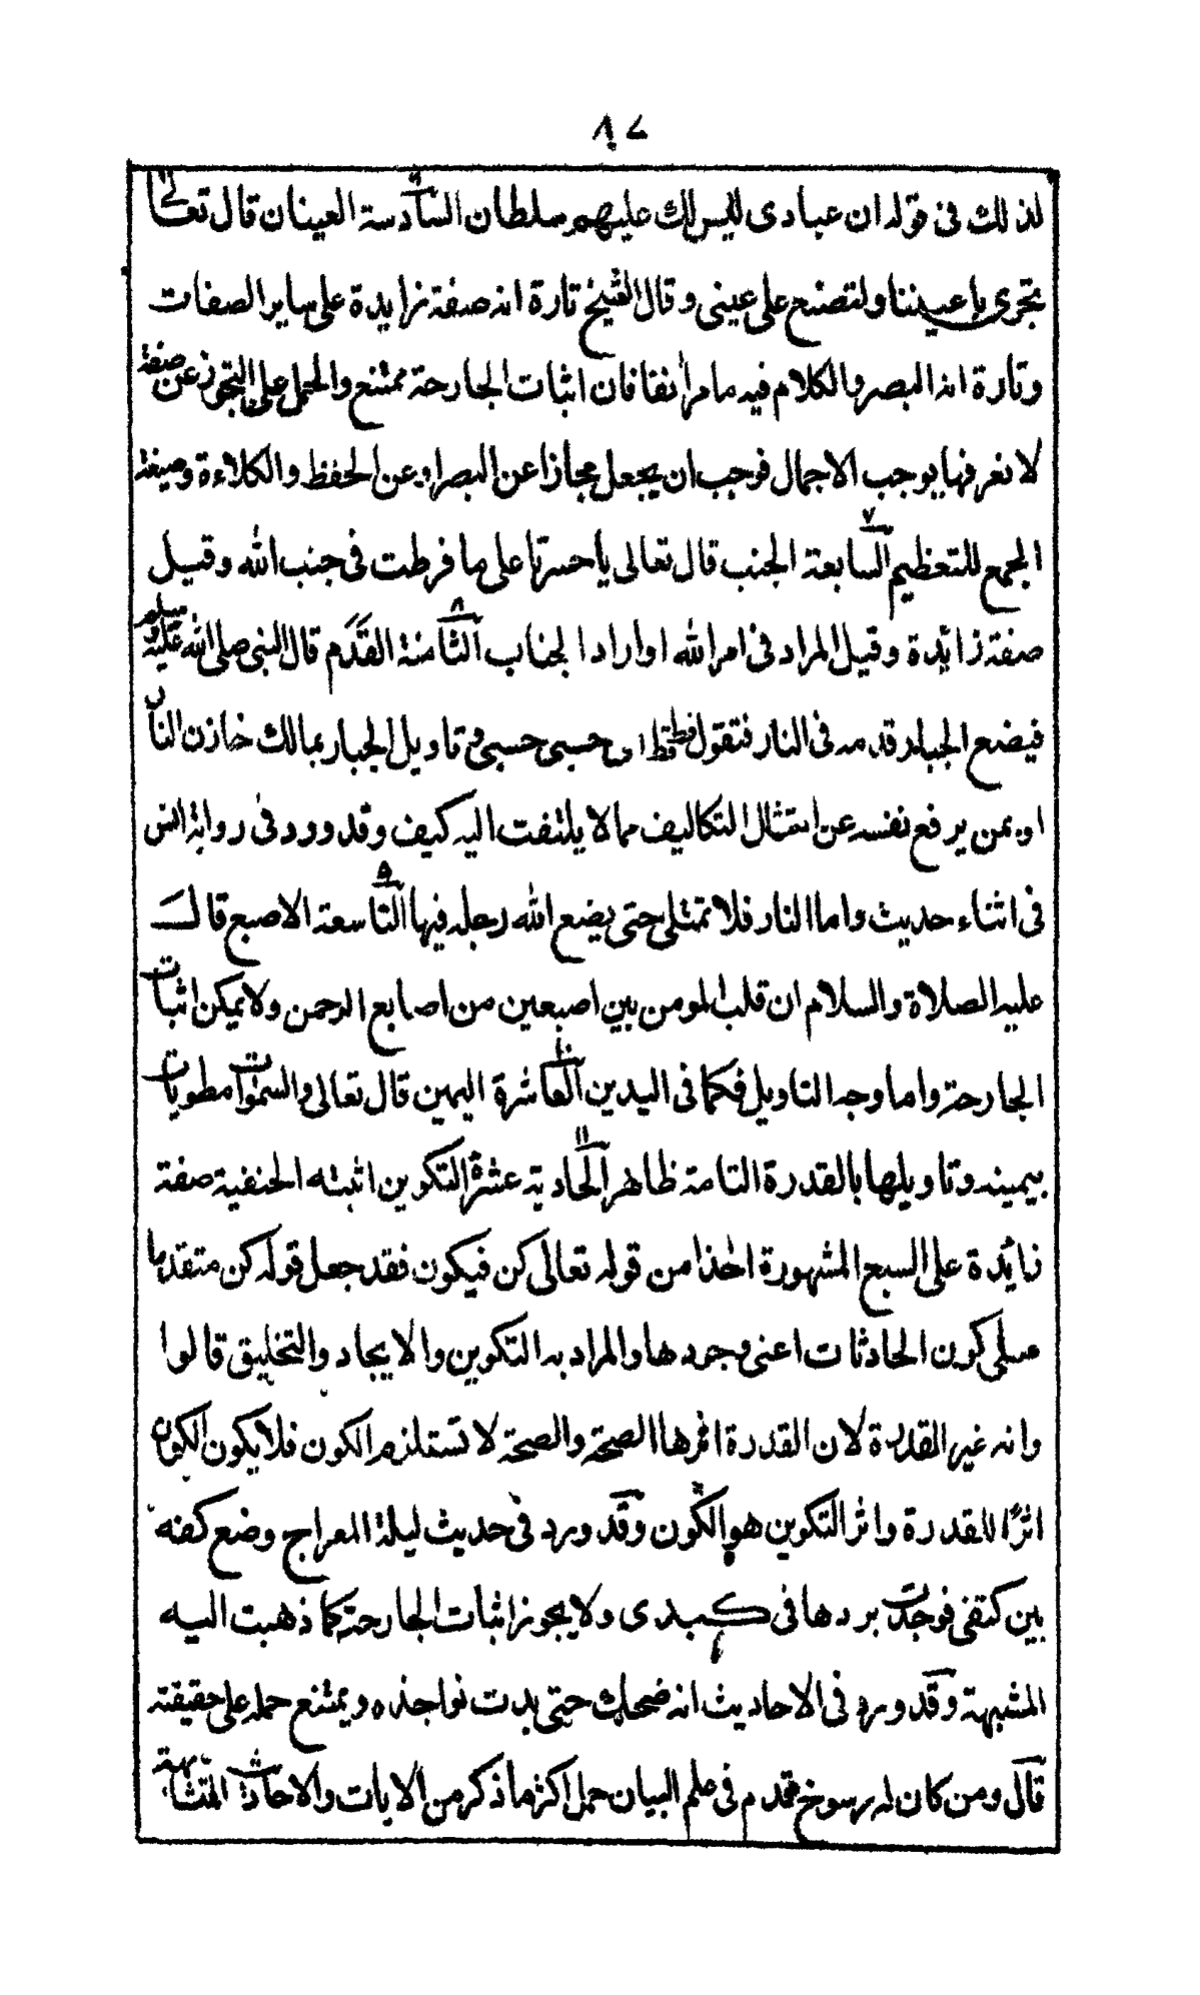 ٨٧
لذلك في قوله ان عبادى ليس لك عليهم سلطان السادسة العينان قال تعالى
تجرى باعيننا ولتصنع على عينى وقال الشيخ تارة انه صفة زايدة على ساير الصفات
وتارة انه البصر والكلام فيه ما مر انفا فان اثبات الجارحة ممتنع والحمل على التجوز عن صفة
لا نعرفها يوجب الاجمال فوجب ان يجعل مجازا عن البصر او عن الحفظ والكلاءة وصيغة
الجمع للتعظيم السابعة ٧ الجنب قال تعالى يا حسرتا على ما فرطت فى جنب الله وقيل
صفة زائدة وقيل المراد فى امر الله او اراد الجناب الثامنة ٨ القدم قال النبى صلى الله عليه وسلم
فيضع الجبار قدمه فى النار فتقول قط قط اى حسبى حسبى وتاويل الجبار بمالك خازن النار
او بمن يرفع نفسه عن امتثال التكاليف مما لا يلتفت اليه كيف وقد ورد فى رواية انس
فى اثناء حديث واما النار فلا تمتلى حتى يضع الله رجله فيها التاسعة ٩ الاصبع قال
عليه الصلاة والسلام ان قلب المومن بين اصبعين من اصابع الرحمن ولا يمكن اثبات
الجارحة واما وجه التاويل فكما فى اليدين العاشرة ١٠ اليمين قال تعالى والسموات مطويات
بيمينه وتاويلها بالقدرة التامة ظاهر الحادية ١١ عشرة التكوين اثبته الحنفية صفة
زائدة على السبع المشهورة اخذا من قوله تعالى كن فيكون فقد جعل قوله كن متقدما
على كون الحادثات اعنى وجودها والمراد به التكوين والايجاد والتخليق قالوا
وانه غير القدرة لان القدرة اثرها الصحة والصحة لا تستلزم الكون فلا يكون الكون
اثرًا للقدرة واثر التكوين هو الكون وقد ورد فى حديث ليلة المعراج وضع كفه
بين كتفى فوجدت بردها فى كبدى ولا يجوز اثبات الجارحة كما ذهبت اليه
المشبهة وقد ورد فى الاحاديث انه ضحك حتى بدت نواجذه ويمتنع حمله على حقيقته
قال ومن كان له رسوخ قدم فى علم البيان حمل اكثر ما ذكر من الايات والاحاديث المتشابهة